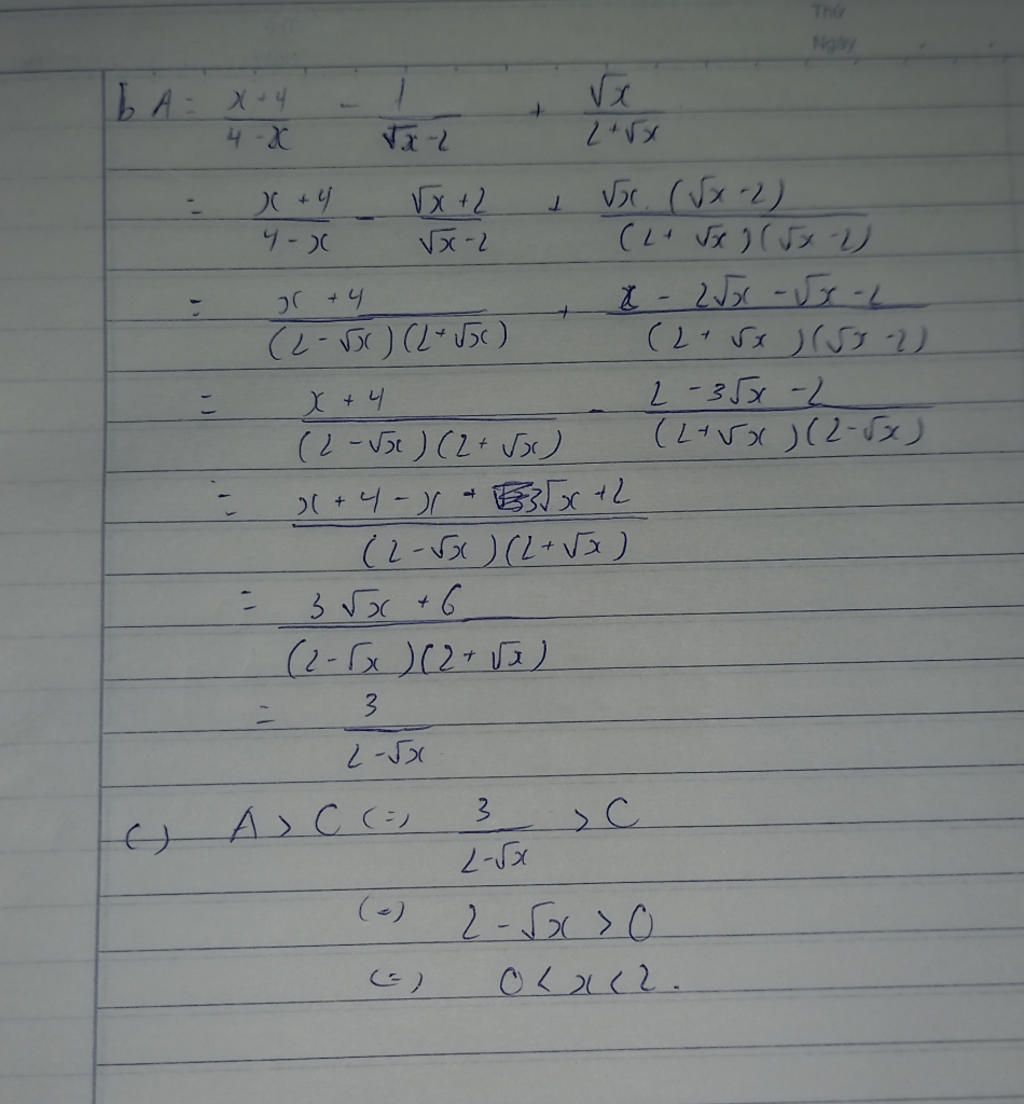 Thứ
Ngày
b A = \frac{x+4}{4-x} - \frac{1}{\sqrt{x}-2} + \frac{\sqrt{x}}{2+\sqrt{x}}
= \frac{x+4}{4-x} - \frac{\sqrt{x}+2}{\sqrt{x}-2} + \frac{\sqrt{x}.(\sqrt{x}-2)}{(2+\sqrt{x})(\sqrt{x}-2)}
= \frac{x+4}{(2-\sqrt{x})(2+\sqrt{x})} + \frac{x-2\sqrt{x}-\sqrt{x}-2}{(2+\sqrt{x})(\sqrt{x}-2)}
= \frac{x+4}{(2-\sqrt{x})(2+\sqrt{x})} - \frac{2-3\sqrt{x}-2}{(2+\sqrt{x})(2-\sqrt{x})}
= \frac{x+4-x+3\sqrt{x}+2}{(2-\sqrt{x})(2+\sqrt{x})}
= \frac{3\sqrt{x}+6}{(2-\sqrt{x})(2+\sqrt{x})}
= \frac{3}{2-\sqrt{x}}
c) A > C (=) \frac{3}{2-\sqrt{x}} > C
(=) 2-\sqrt{x} > 0
(=) 0 < x < 2.